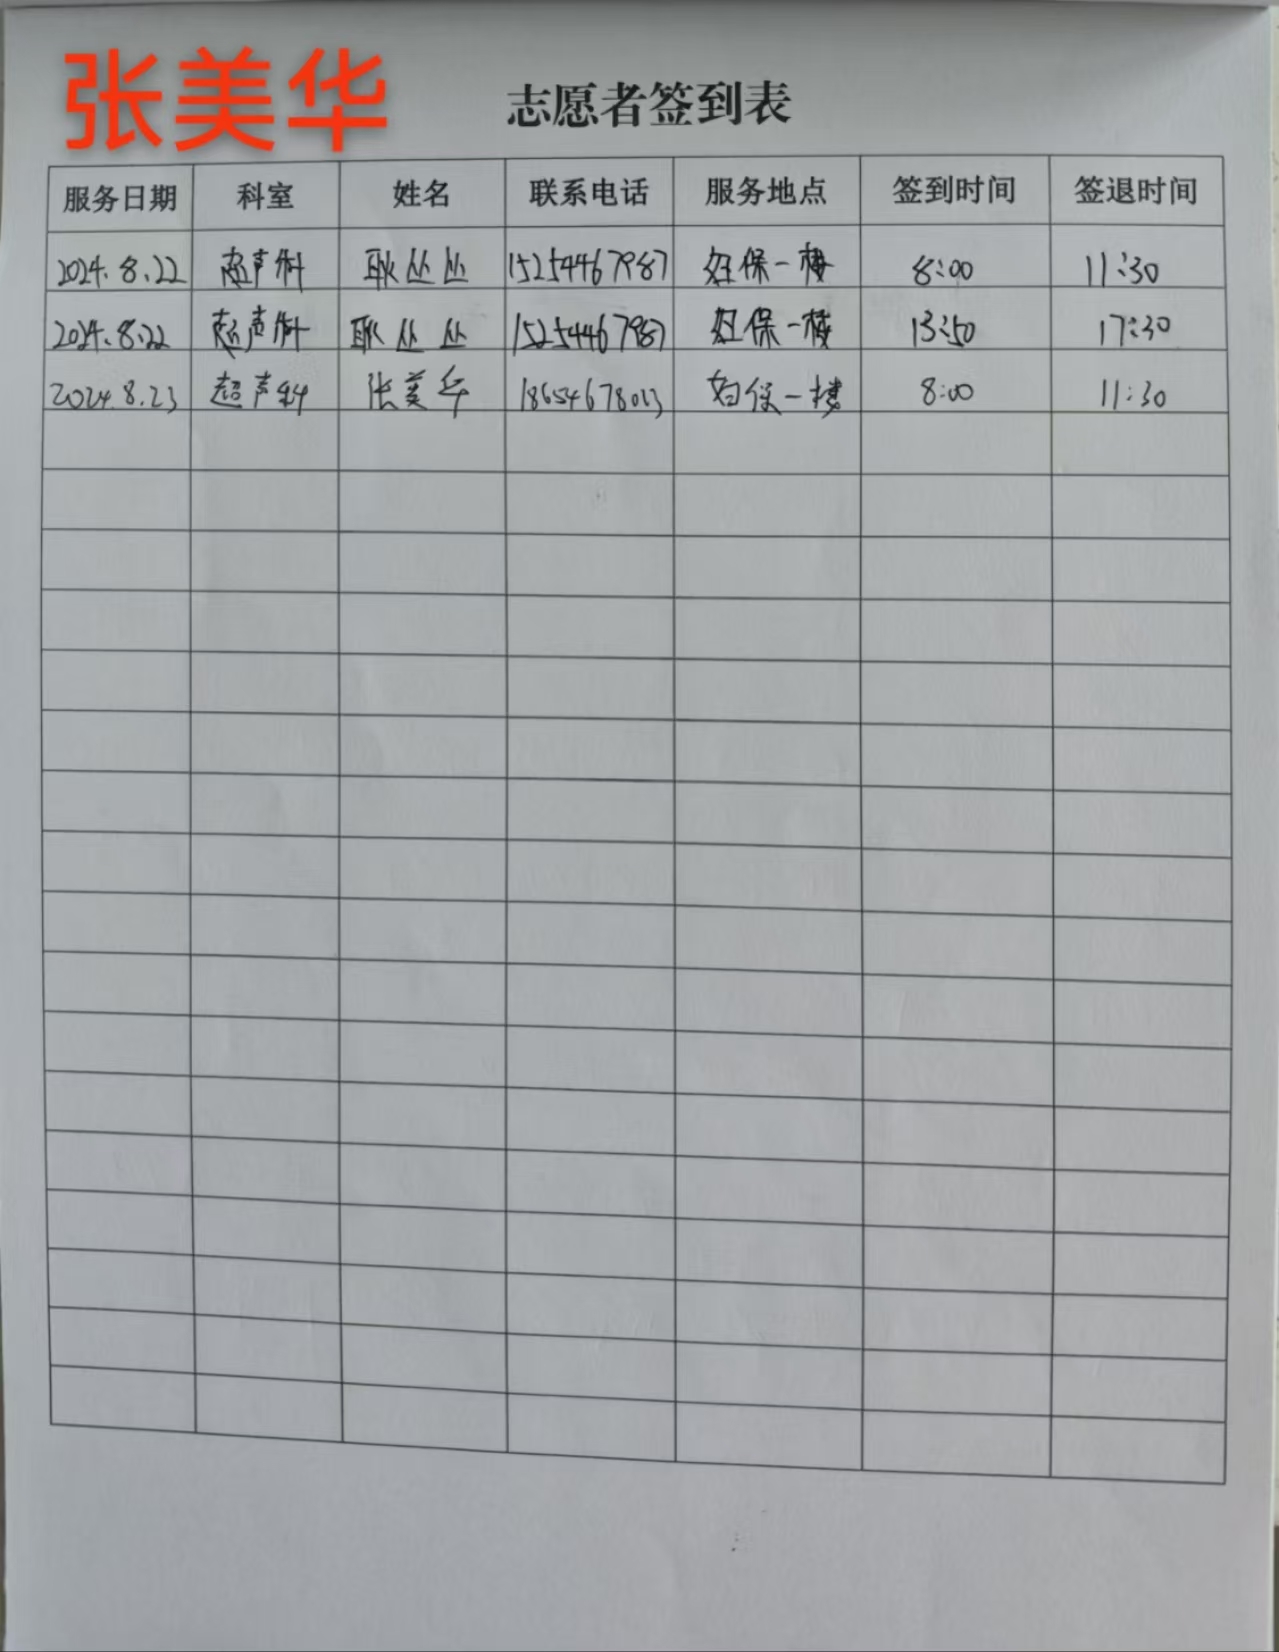 张美华
志愿者签到表
服务日期 科室 姓名 联系电话 服务地点 签到时间 签退时间
2024.8.22 超声科 耿丛丛 15254467987 妇保一楼 8:00 11:30
2024.8.22 超声科 耿丛丛 15254467987 妇保一楼 13:50 17:30
2024.8.23 超声科 张美华 18654678023 妇保一楼 8:00 11:30